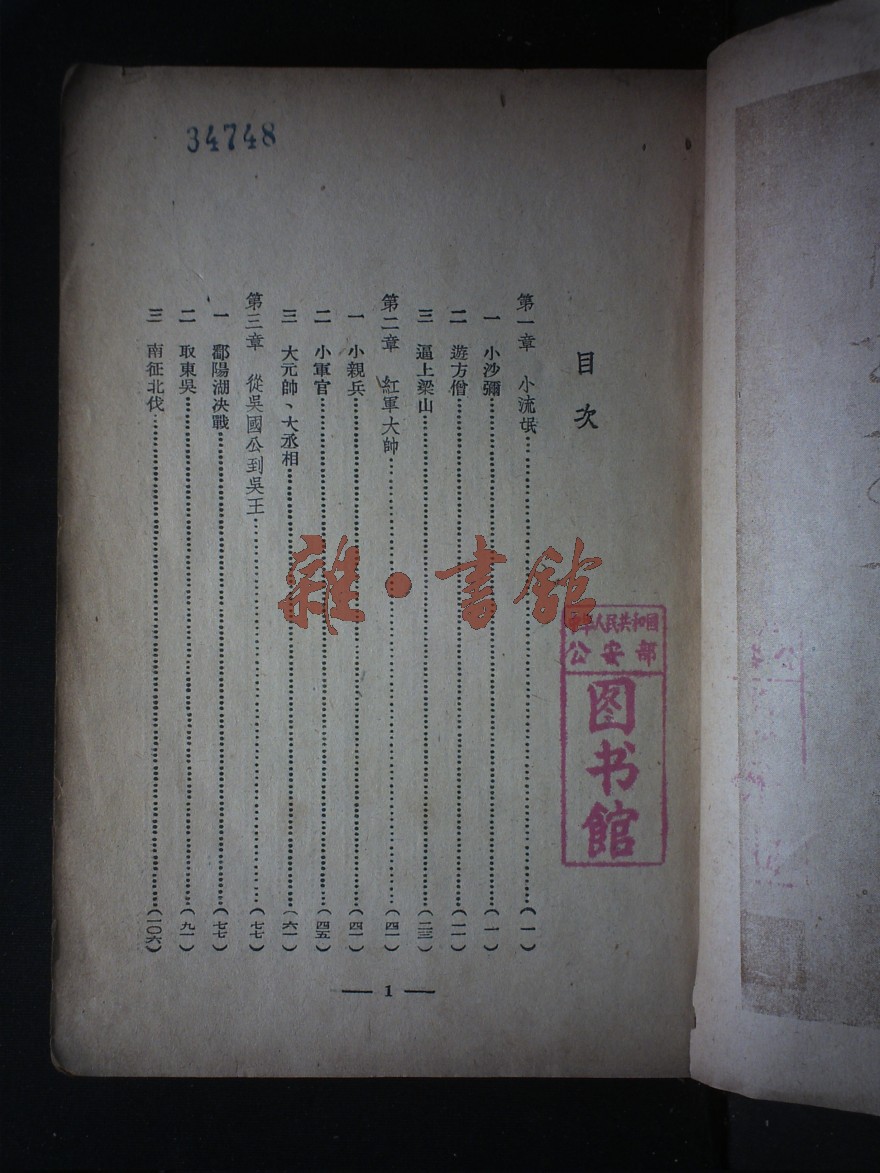 34748
目次
第一章　小流氓……（一）
一　小沙彌……（一）
二　遊方僧……（一一）
三　逼上梁山……（二三）
第二章　紅軍大帥……（四一）
一　小親兵……（四一）
二　小軍官……（四五）
三　大元帥、大丞相……（六一）
第三章　從吳國公到吳王……（七七）
一　鄱陽湖决戰……（七七）
二　取東吳……（九一）
三　南征北伐……（一〇六）
— 1 —
雜·書館
中华人民共和国
公安部
图书馆